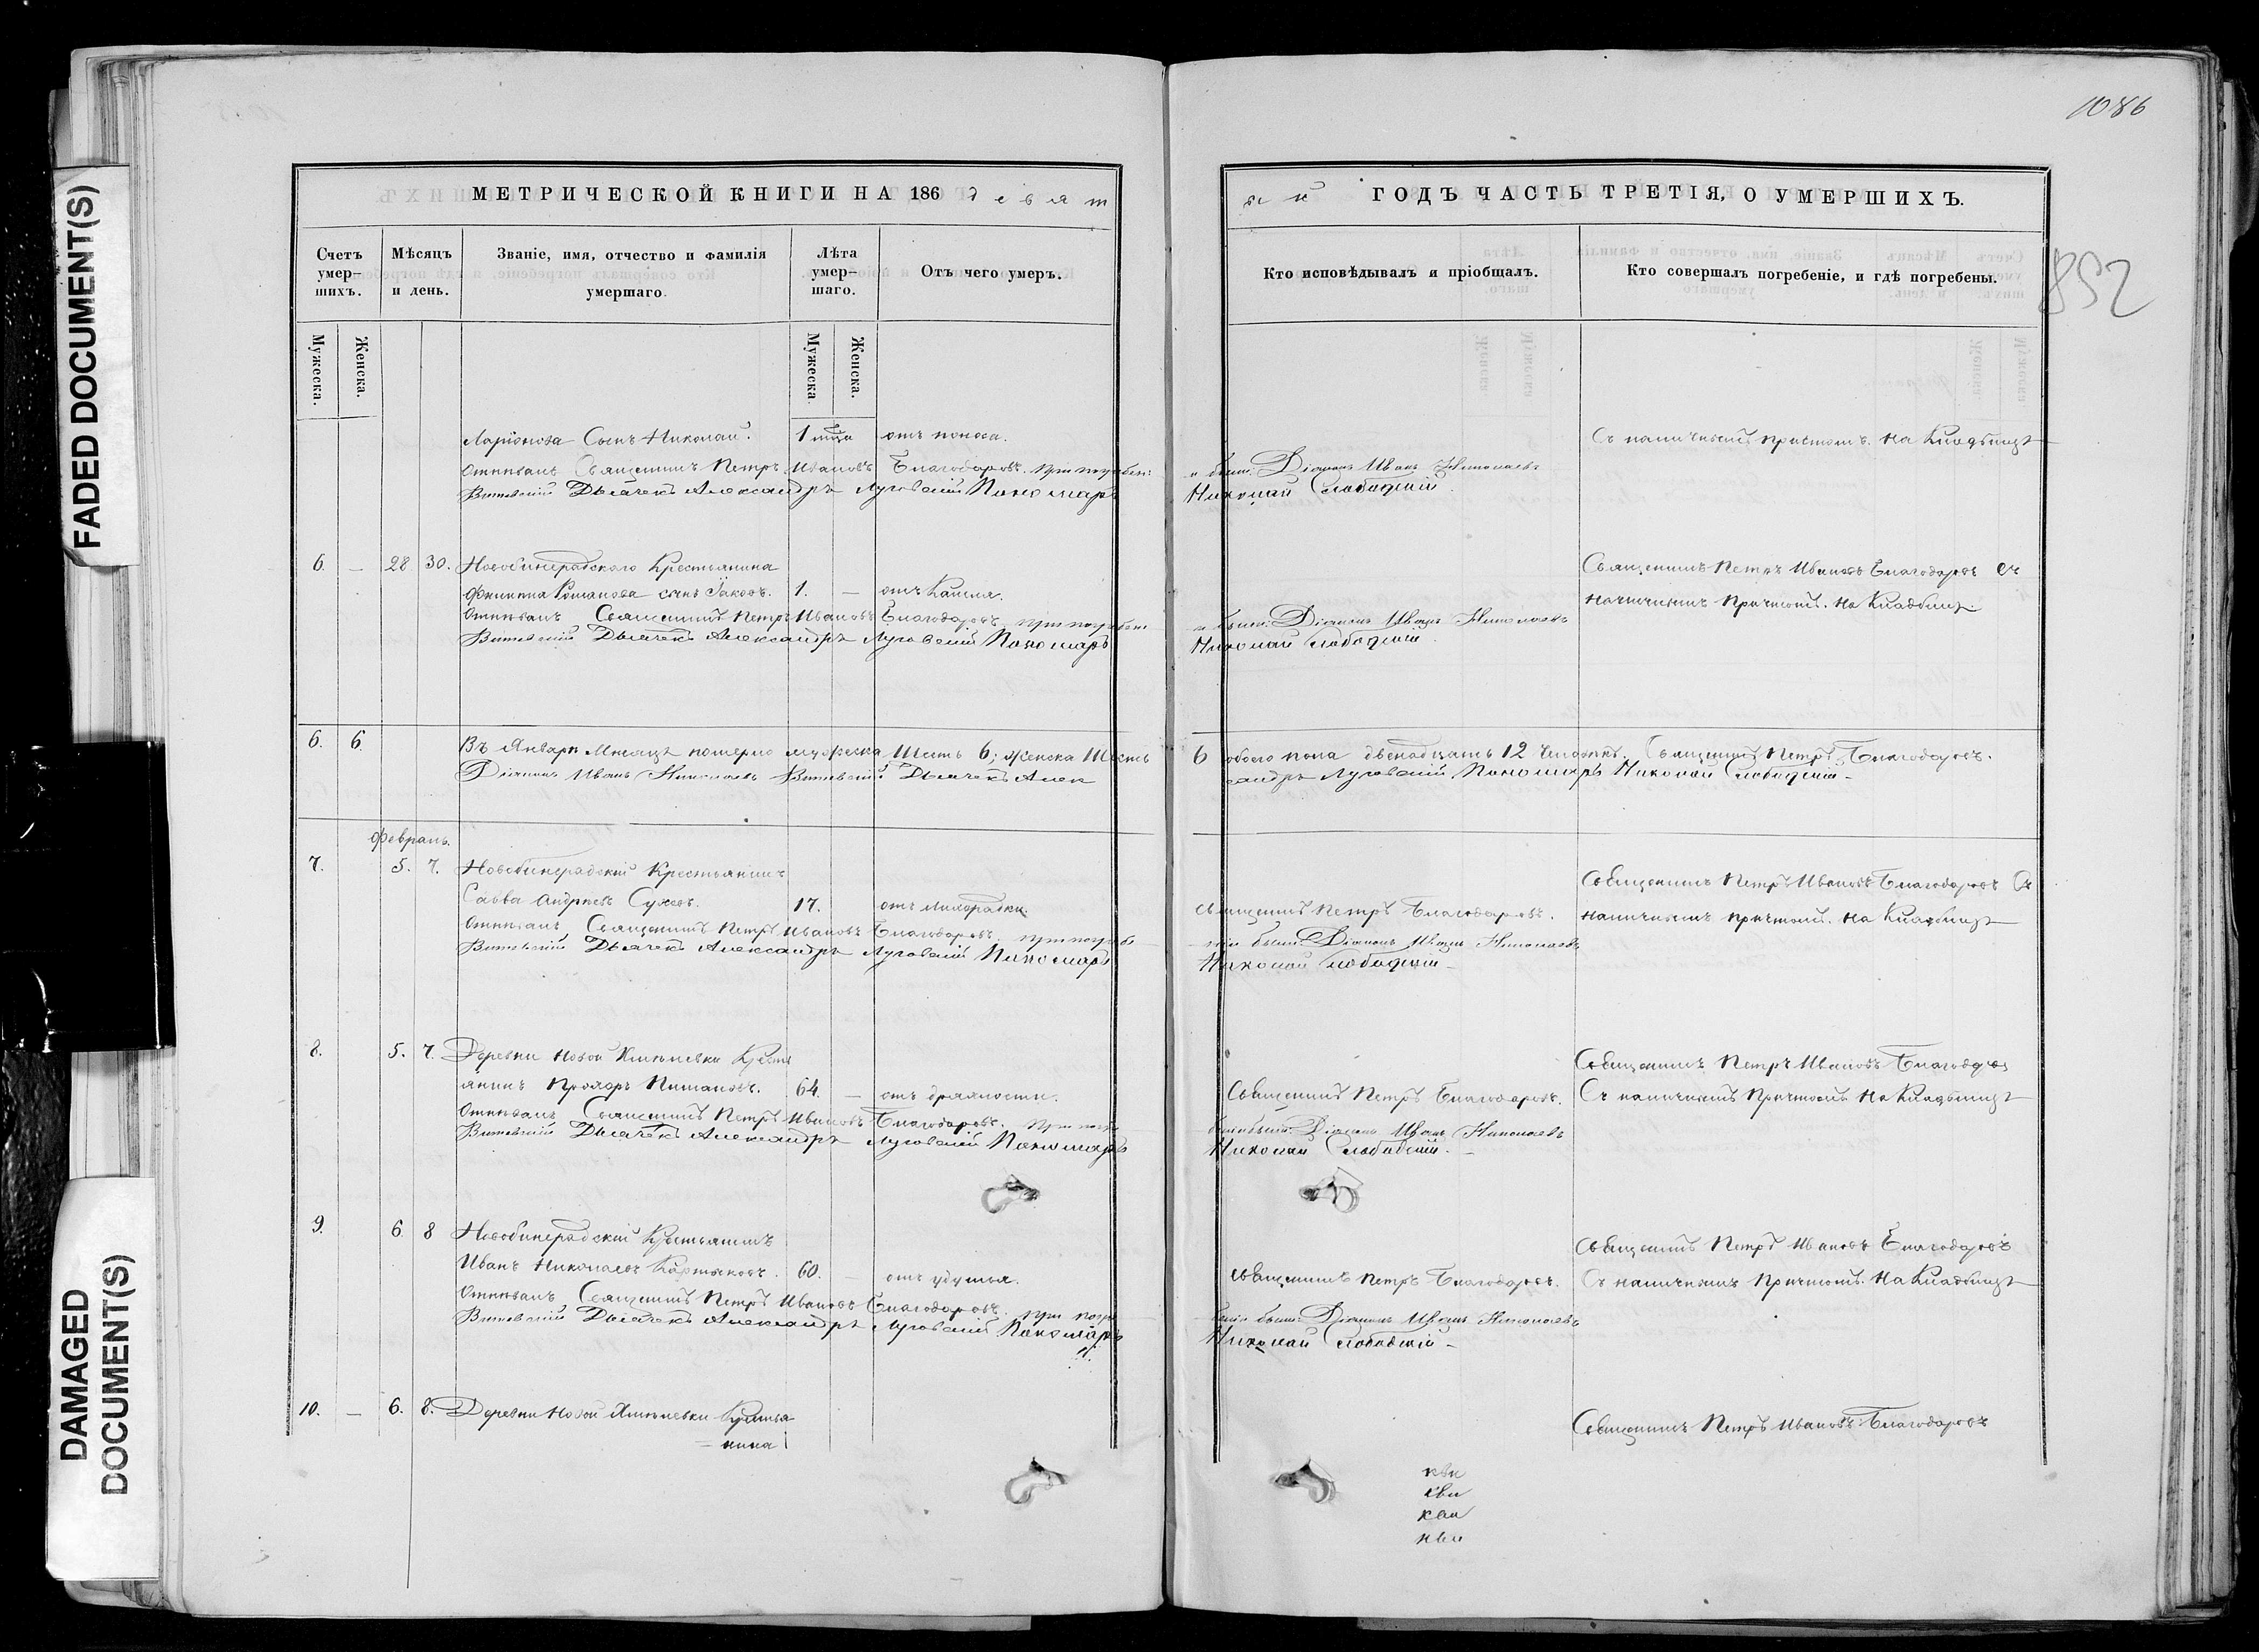 1086
852
FADED DOCUMENT(S)
DAMAGED
DOCUMENT(S)
МЕТРИЧЕСКОЙ КНИГИ НА 186 девят
Счетъ умер-шихъ.
Мѣсяцъ и день.
Званіе, имя, отчество и фамилія умершаго.
Лѣта умер-шаго.
Отъ чего умеръ.
Мужеска.
Женска.
Мужеска.
Женска.
Ларіонова Сынъ Николай. 1 отъ поноса.
Отпѣвалъ Священникъ Петръ Ивановъ Благодаровъ. при погребен:
Дьячекъ Александръ Луговскій Пономарь
6. — 28 30. Крестьянина
Филиппа Романова сынъ Іаковъ. 1. — отъ Кашля.
Отпѣвалъ Священникъ Петръ Ивановъ Благодаровъ при погребен
Дьячекъ Александръ Луговскій Пономарь
6. 6. Въ Январѣ Мѣсяцѣ померло мужеска Шесть 6; Женска Шесть
Діаконъ Иванъ Николаевъ Дьячекъ Алек
Февраль.
7. 5. 7. Крестьянинъ
Савва Андреевъ Суховъ. 17. отъ лихорадки.
Отпѣвалъ Священникъ Петръ Ивановъ Благодаровъ. при погребе
Дьячекъ Александръ Луговскій Пономарь
8. 5. 7. Деревни Новой Кресть
янинъ Прохоръ 64. — отъ дряхлости.
Отпѣвалъ Священникъ Петръ Ивановъ Благодаровъ. При погре
Дьячекъ Александръ Луговскій Пономарь
9. 6 8 Крестьянинъ
Иванъ Николаевъ 60. — отъ удушья.
Отпѣвалъ Священникъ Петръ Ивановъ Благодаровъ. при погре
Дьячекъ Александръ Луговскій Пономарь
10. — 6. 8. Деревни Новой Крестья
нина
ый ГОДЪ ЧАСТЬ ТРЕТІЯ, О УМЕРШИХЪ.
Кто исповѣдывалъ и пріобщалъ.
Кто совершалъ погребеніе, и гдѣ погребены.
Съ наличнымъ причтомъ. На Кладбищѣ
были: Діаконъ Иванъ Николаевъ
Николай Слободскій.
Священникъ Петръ Ивановъ Благодаровъ Съ
наличнымъ Причтомъ. На Кладбищѣ.
были: Діаконъ Иванъ Николаевъ
Николай Слободскій.
6 обоего пола двенадцать 12 Человѣкъ. Священникъ Петръ Благодаровъ.
сандръ Луговскій Пономарь Николай Слободскій —
Священникъ Петръ Ивановъ Благодаровъ Съ
Священникъ Петръ Благодаровъ. наличнымъ причтомъ. На Кладбищѣ
ніи были: Діаконъ Иванъ Николаевъ
Николай Слободскій —
Священникъ Петръ Ивановъ
Священникъ Петръ Благодаровъ. Съ наличнымъ Причтомъ На Кладбищѣ
были: Діаконъ Иванъ Николаевъ
Николай Слободскій. —
Священникъ Петръ Ивановъ Благодаровъ
Священникъ Петръ Благодаровъ. Съ наличнымъ Причтомъ. На Кладбищѣ
были: Діаконъ Иванъ Николаевъ
Николай Слободскій —
Священникъ Петръ Ивановъ Благодаровъ